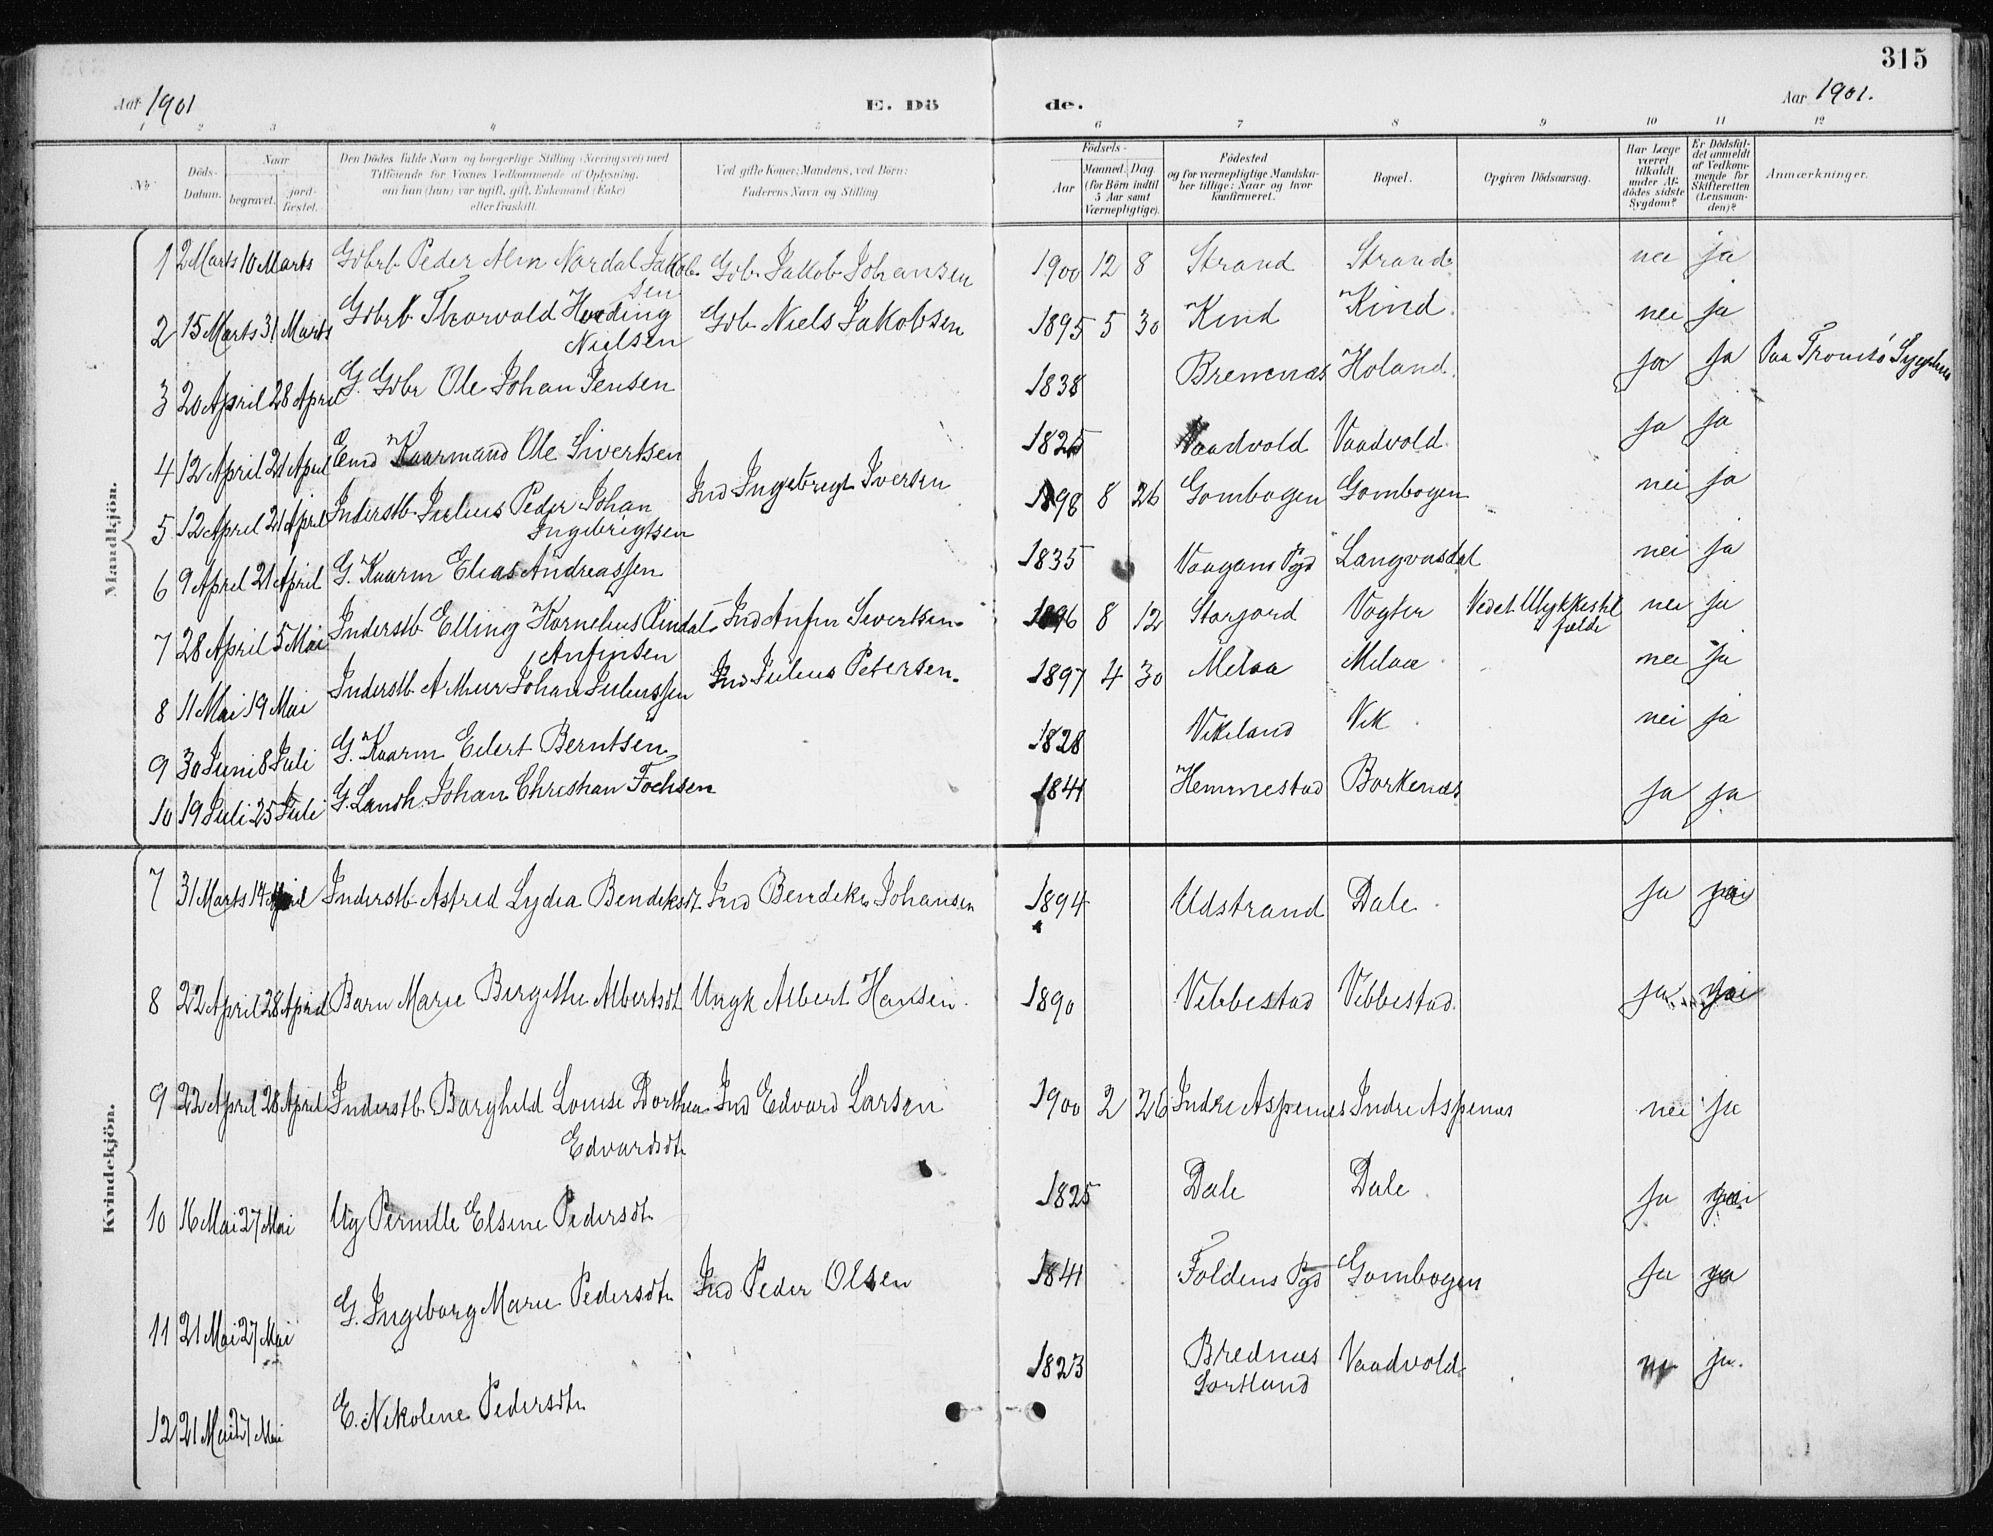 315
Aar 1901
E. Dö
de.
Aar 1901.
1 2 3 4 5 6 7 8 9 10 11 12
No
Döds-
Datum.
Naar
begravet.
jord-
fæstet.
Den Dödes fulde Navn og borgerlige Stilling (Næringsvei) med
Tilföiende for Voxnes Vedkommende af Oplysning,
om han (hun) var ugift, gift, Enkemand (Enke)
eller fraskilt.
Ved gifte Koner: Mandens, ved Börn:
Faderens Navn og Stilling
Födsels-
Aar
Maaned. Dag
(for Börn indtil
5 Aar samt
Værnepligtige).
Födested
og for værnepligtige Mandska-
ber tillige: Naar og hvor
konfirmeret.
Bopæl.
Opgiven Dödsaarsag.
Har Læge
været
tilkaldt
under Af-
dödes sidste
Sygdom?
Er Dödsfal-
det anmeldt
af Vedkom-
mende for
Skifteretten
(Lensman-
den)?
Anmærkninger.
Mandkjön.
1 2 Marts 10 Marts Gbrb. Peder Alm Nordal Jakob- Gbr. Jakob Johansen 1900 12 8 Strand Strand nei ja
sen
2 15 Marts 31 Marts Gbrb. Thorvald Harding Gbr. Niels Jakobsen 1895 5 30 Kind Kind. nei ja
Nielsen
3 20 April 28 April G. Gbr Ole Johan Jensen 1838 Bremnæs Holand. ja ja Paa Tromsö Sygehus
4 12 April 21 April Emd Kaarmand Ole Sivertsen 1825 Vaadvold Vaadvold ja ja
5 12 April 21 April Inderstb Julius Peder Johan Ind Ingebrigt Iversen 1898 8 26 Gombogen Gombogen nei ja
Ingebrigtsen
6 9 April 21 April G. Kaarm Elias Andreassen 1835 Vaagans Pgd Langvasdal nei ja
7 28 April 5 Mai Inderstb Elling Kornelius Rindal- Ind Anfin Sivertsen 1896 8 12 Storjord Vogter Ved et Ulykkestil- nei ja
Anfinsen
fælde
8 11 Mai 19 Mai Inderstb Arthur Johan Juliussen Ind Julius Petersen. 1897 4 30 Melaa Melaa nei ja
9 30 Juni 8 Juli G. Kaarm Eilert Berntsen 1828 Vikeland Vik nei ja
10 19 Juli 25 Juli G. Landh. Johan Christian Fochsen 1841 Hemmestad Borkenæs ja ja
Kvindekjön.
7 31 Marts 14 April Inderstb Astrid Lydia Bendiksdt. Ind Bendiks Johansen 1894 Udstrand Dale ja nei
8 22 April 28 April Barn Marie Birgithe Albertsdt. Ungk Albert Hansen. 1890 Vebbestad Vebbestad. ja nei
9 22 April 28 April Inderstb. Borghild Louise Dorthea Ind Edvard Larsen 1900 2 26 Indre Aspenes Indre Aspenæs nei ja
Edvardsdt.
10 16 Mai 27 Mai Ug Pernille Elsine Pedersdt. 1825 Dale Dale ja nei
11 21 Mai 27 Mai G. Ingeborg Marie Pedersdt. Ind Peder Olsen 1841 Foldens Pgd Gombogen ja ja
12 21 Mai 27 Mai E. Nikoline Pedersdt. 1823 Brednæs Vaadvold. ja.
Sortland